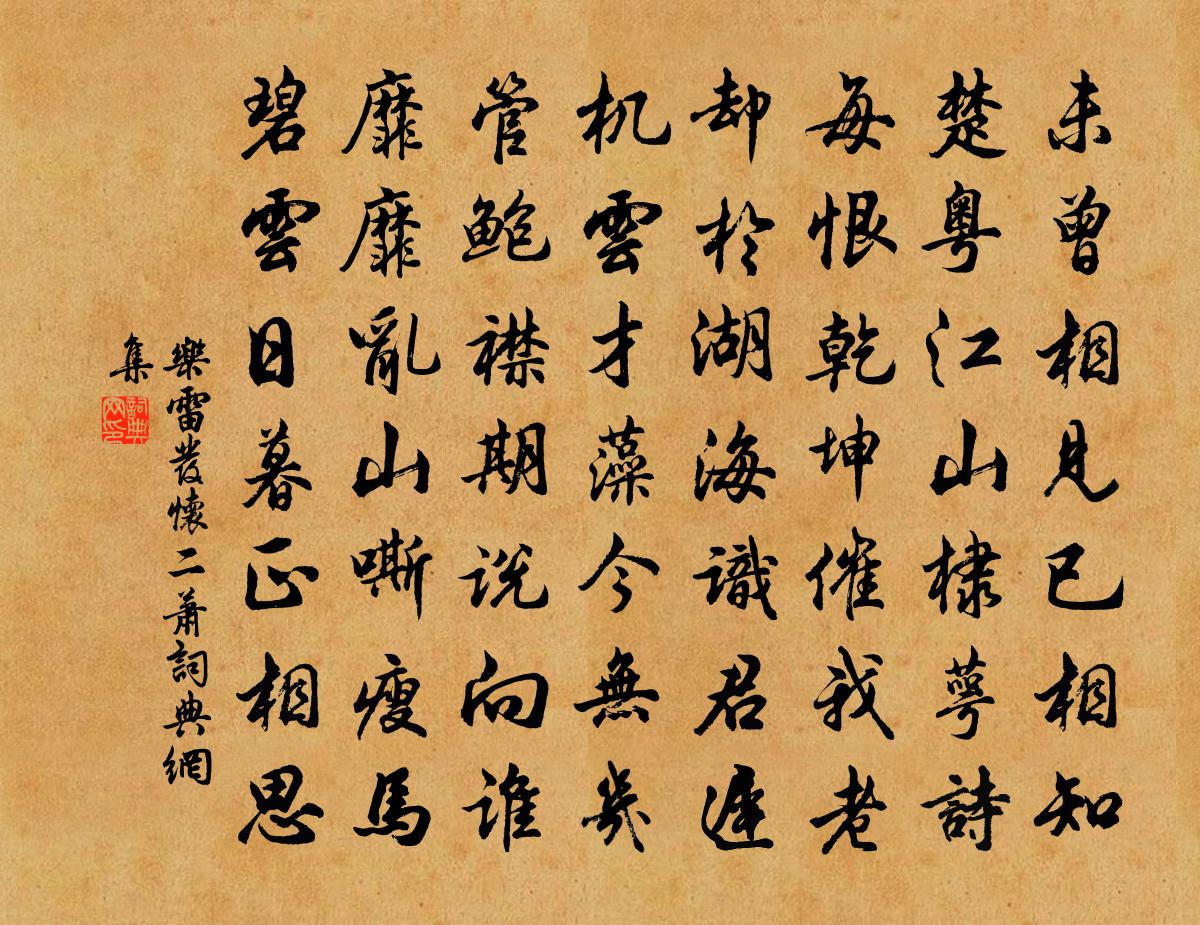 未曾相見已相知
楚粵江山棣萼詩
每恨乾坤催我老
却於湖海識君遲
机雲才藻今無幾
管鮑襟期説向谁
靡靡亂山嘶瘦馬
碧雲日暮正相思
樂雷發懷二蕭詞典網
集
詞典
网印